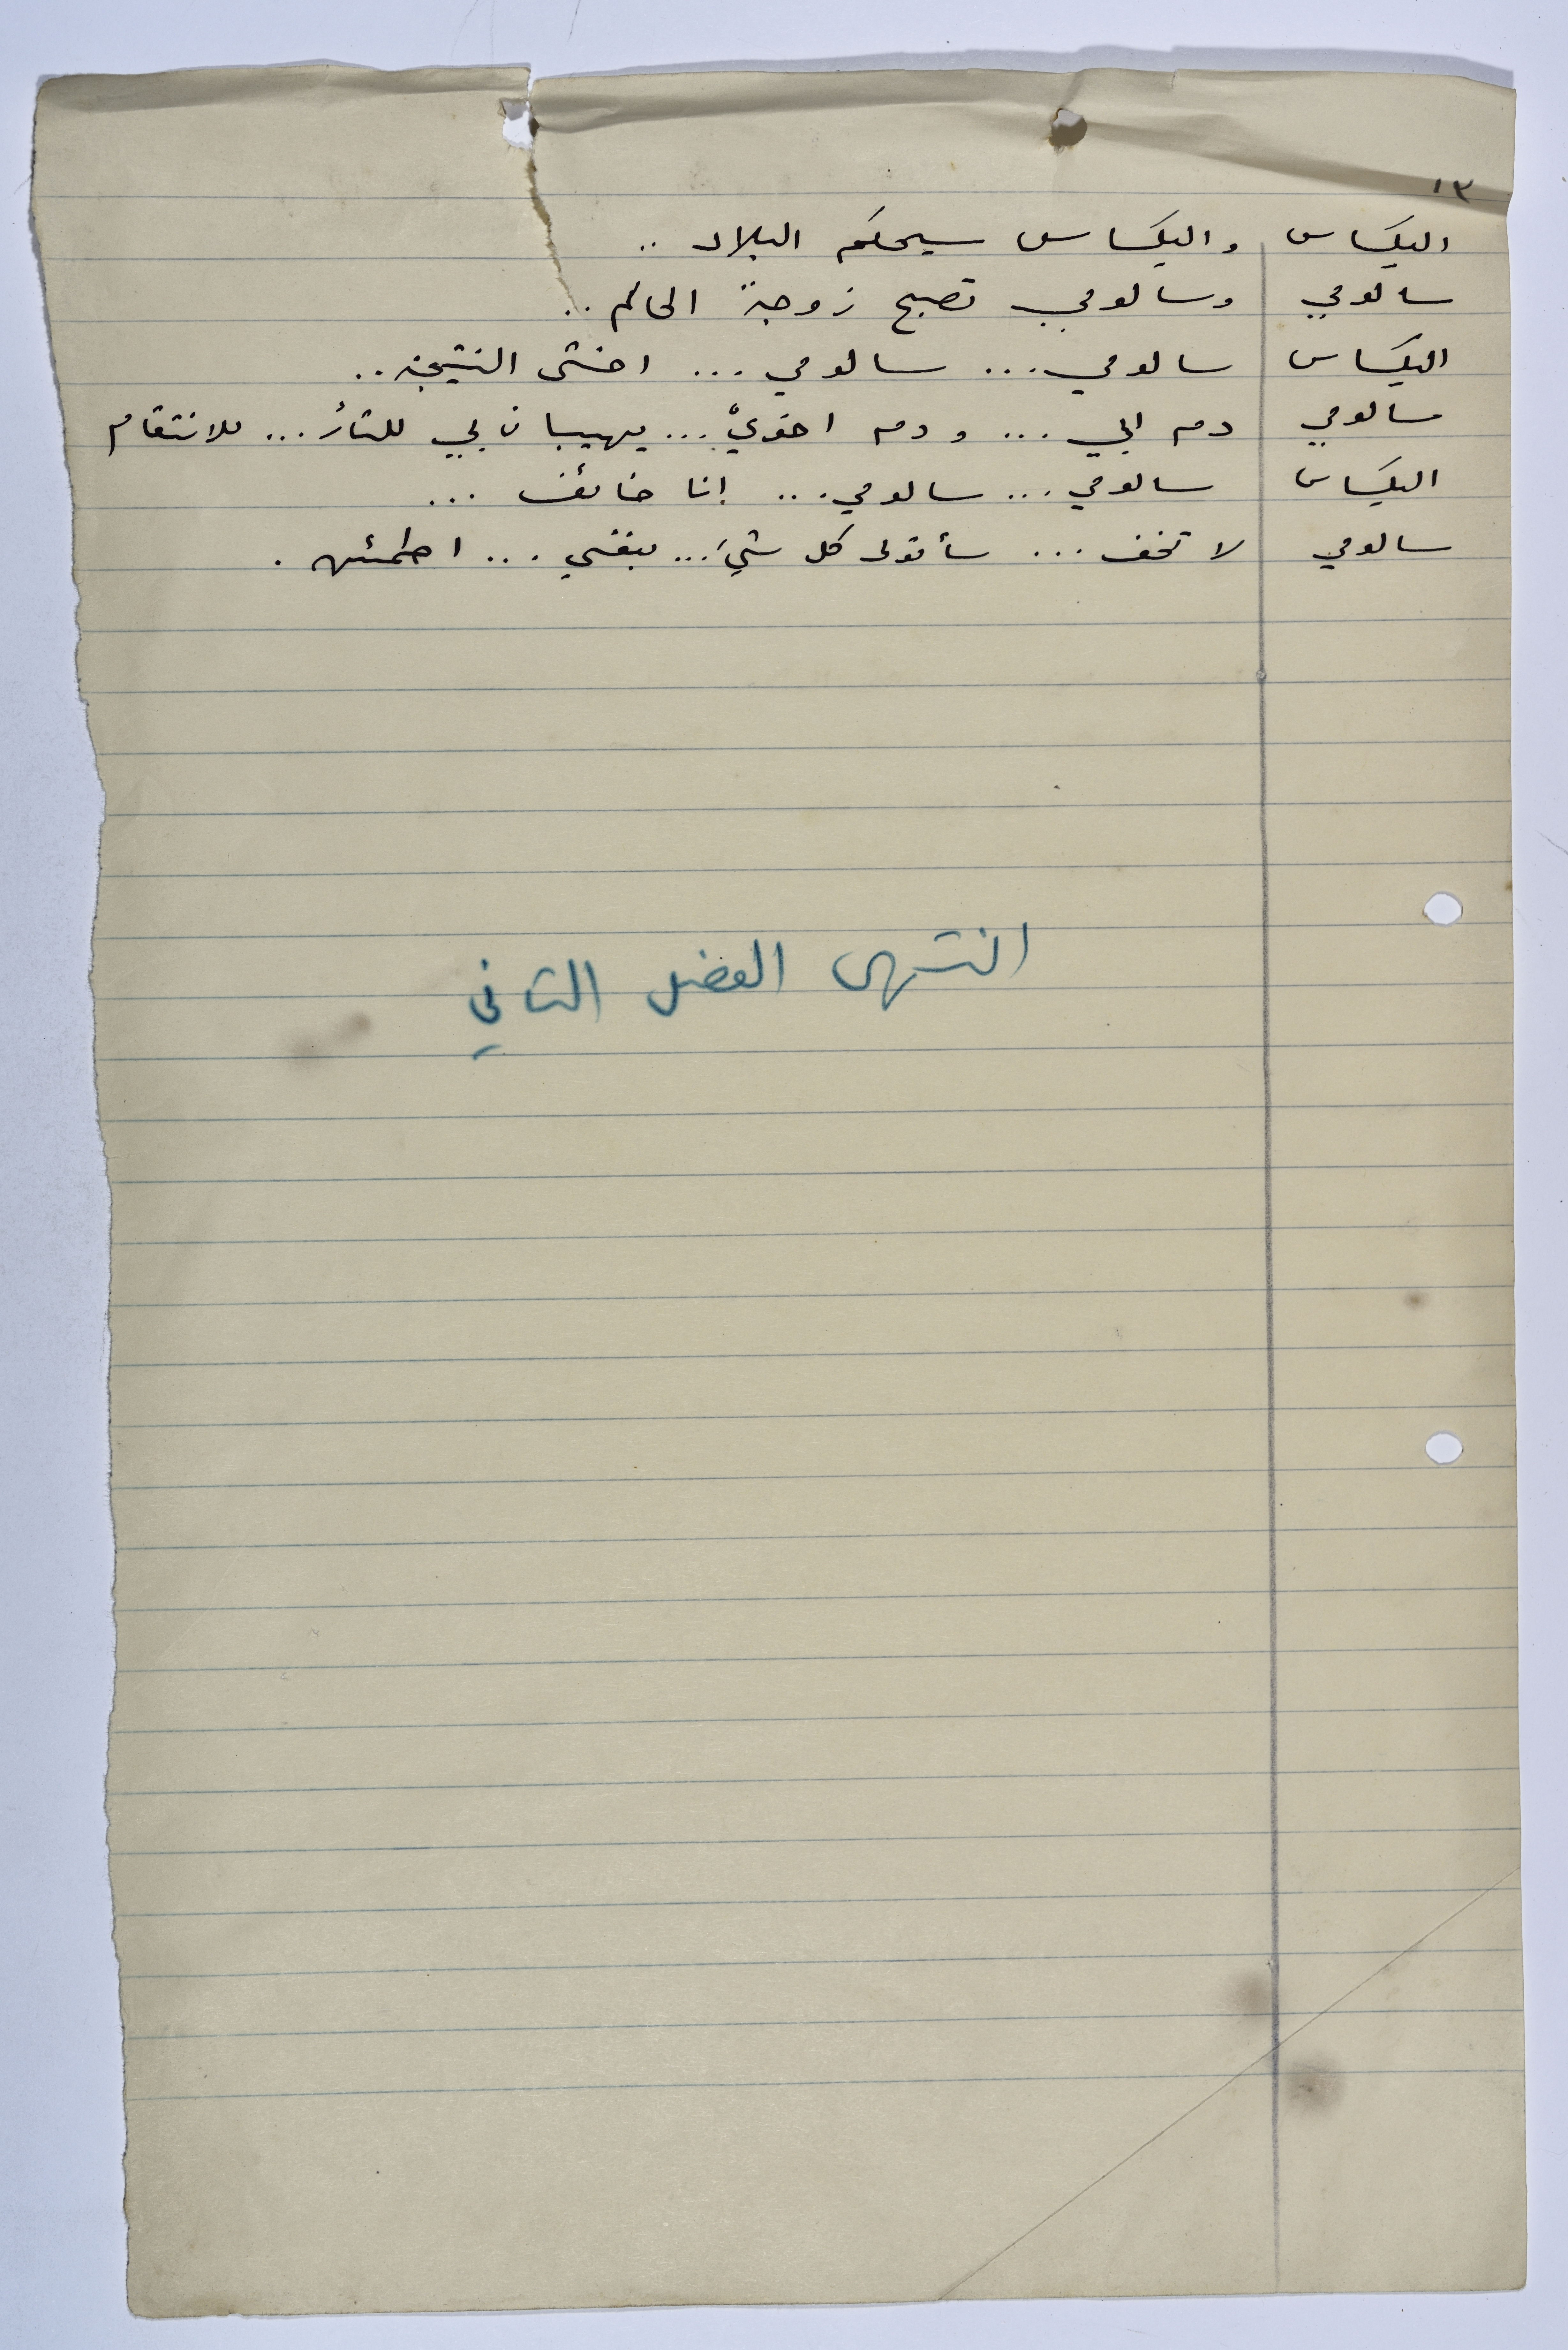 ١٣
اليكساس واليكساس سيحكم البلاد ..
سالومي وسالومي تصبح زوجة الحاكم ..
اليكساس سالومي ... سالومي ... اخشى النتيجة ..
سالومي دم ابي ... ودم اخويّ ... يهيبان بي للثأر ... للانتقام
اليكساس سالومي ... سالومي ... انا خائف ...
سالومي لا تخف ... سأتولى كل شيء ... بنفسي ... اطمئن .
انتهى الفصل الثاني